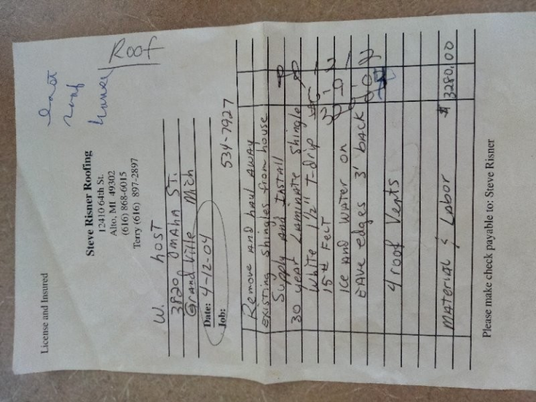 License and Insured
Roof
Steve Risner Roofing
12410 64th St.
Alto, MI 49302
(616) 868-6015
Terry (616) 897-2897
W. host
3820 Omaha St.
Grandville Mich
Date: 4-12-04
534-7927
Job:
Remove and haul away
existing shingles from house
Supply and Install
30 year Laminate shingle
White 1 1/2" T-drip
15# Felt
Ice and Water on
Eave edges 3' back
4 roof vents
Material & Labor $3280.00
Please make check payable to: Steve Risner